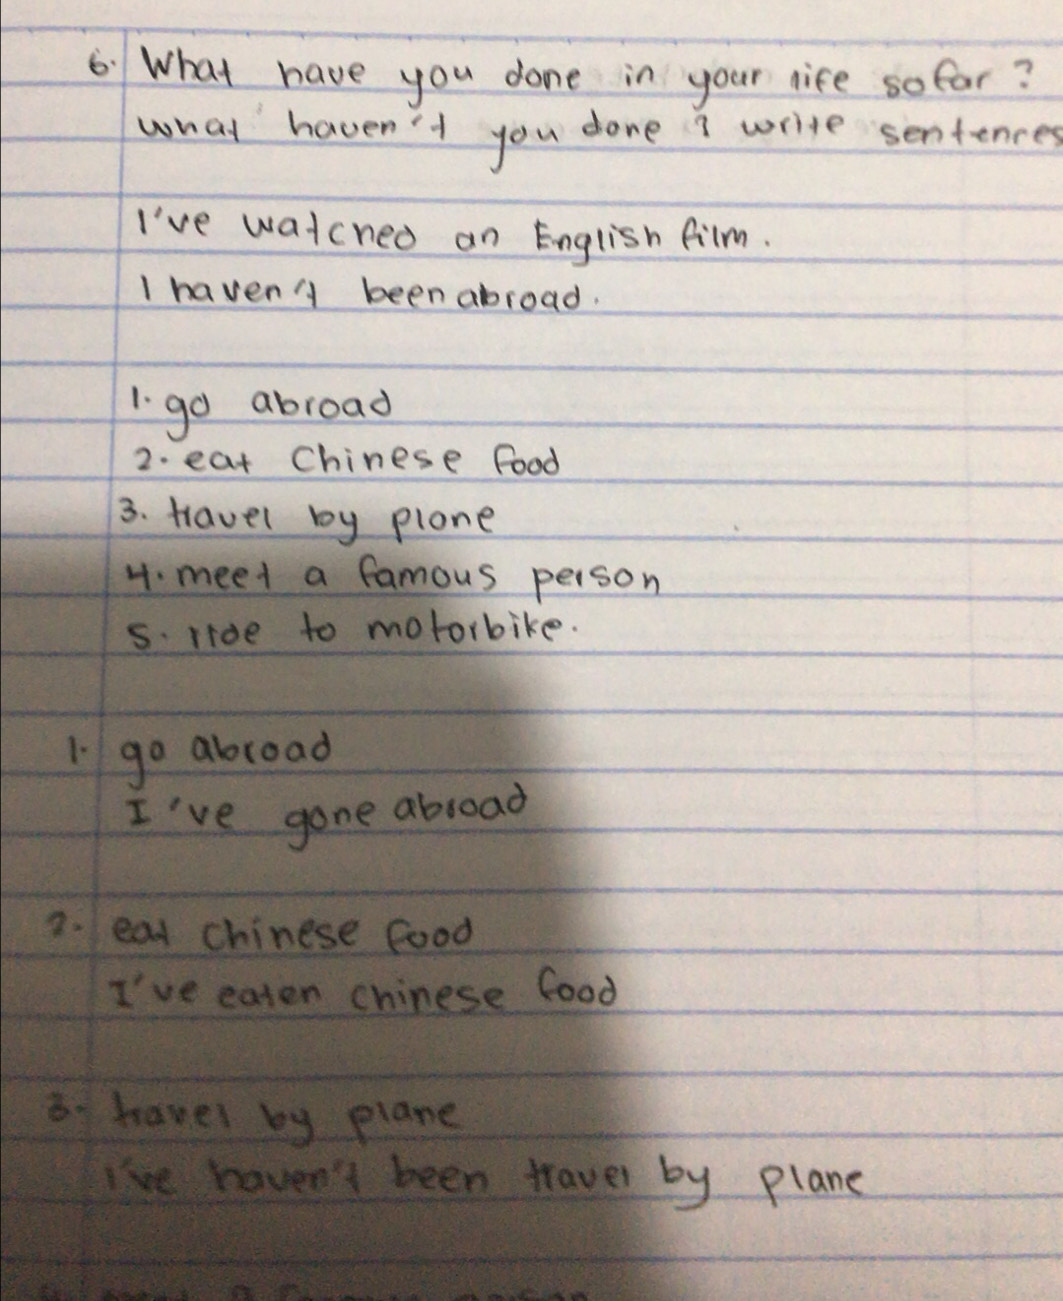 6. What have you done in your life so far?
What haven't you done? write sentences
I've watched an English film.
I haven't been abroad.
1. go abroad
2. eat Chinese food
3. travel by plane
4. meet a famous person
5. ride to motorbike.
1. go abroad
I've gone abroad
2. eat chinese food
I've eaten chinese food
3. travel by plane
I've haven't been travel by plane